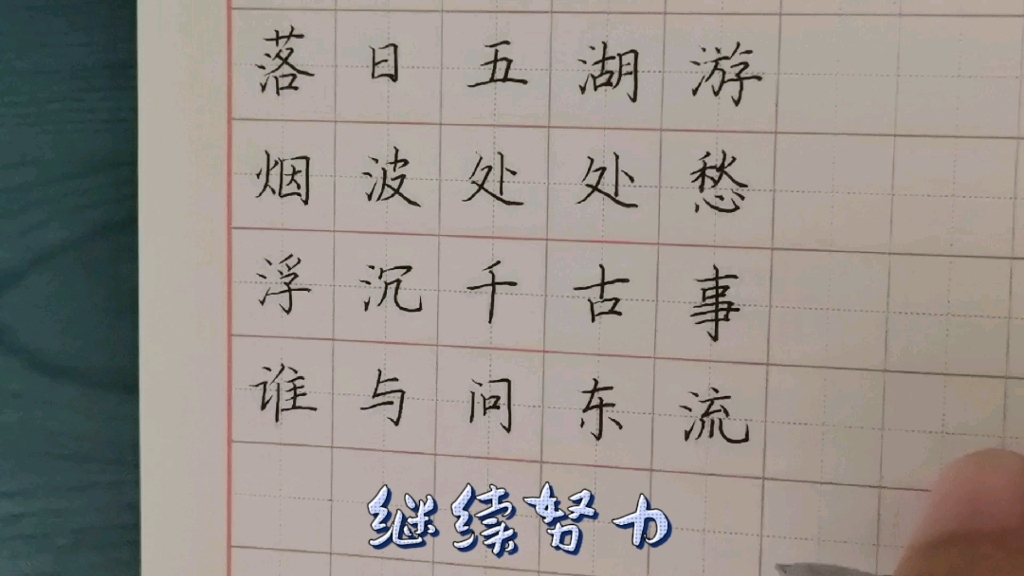 落日五湖游
烟波处处愁
浮沉千古事
谁与问东流
继续努力